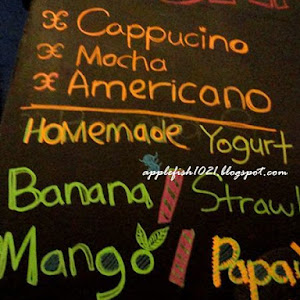 Cappucino
Mocha
Americano
Homemade Yogurt
applefish1021.blogspot.com
Banana Straw
Mango Papa